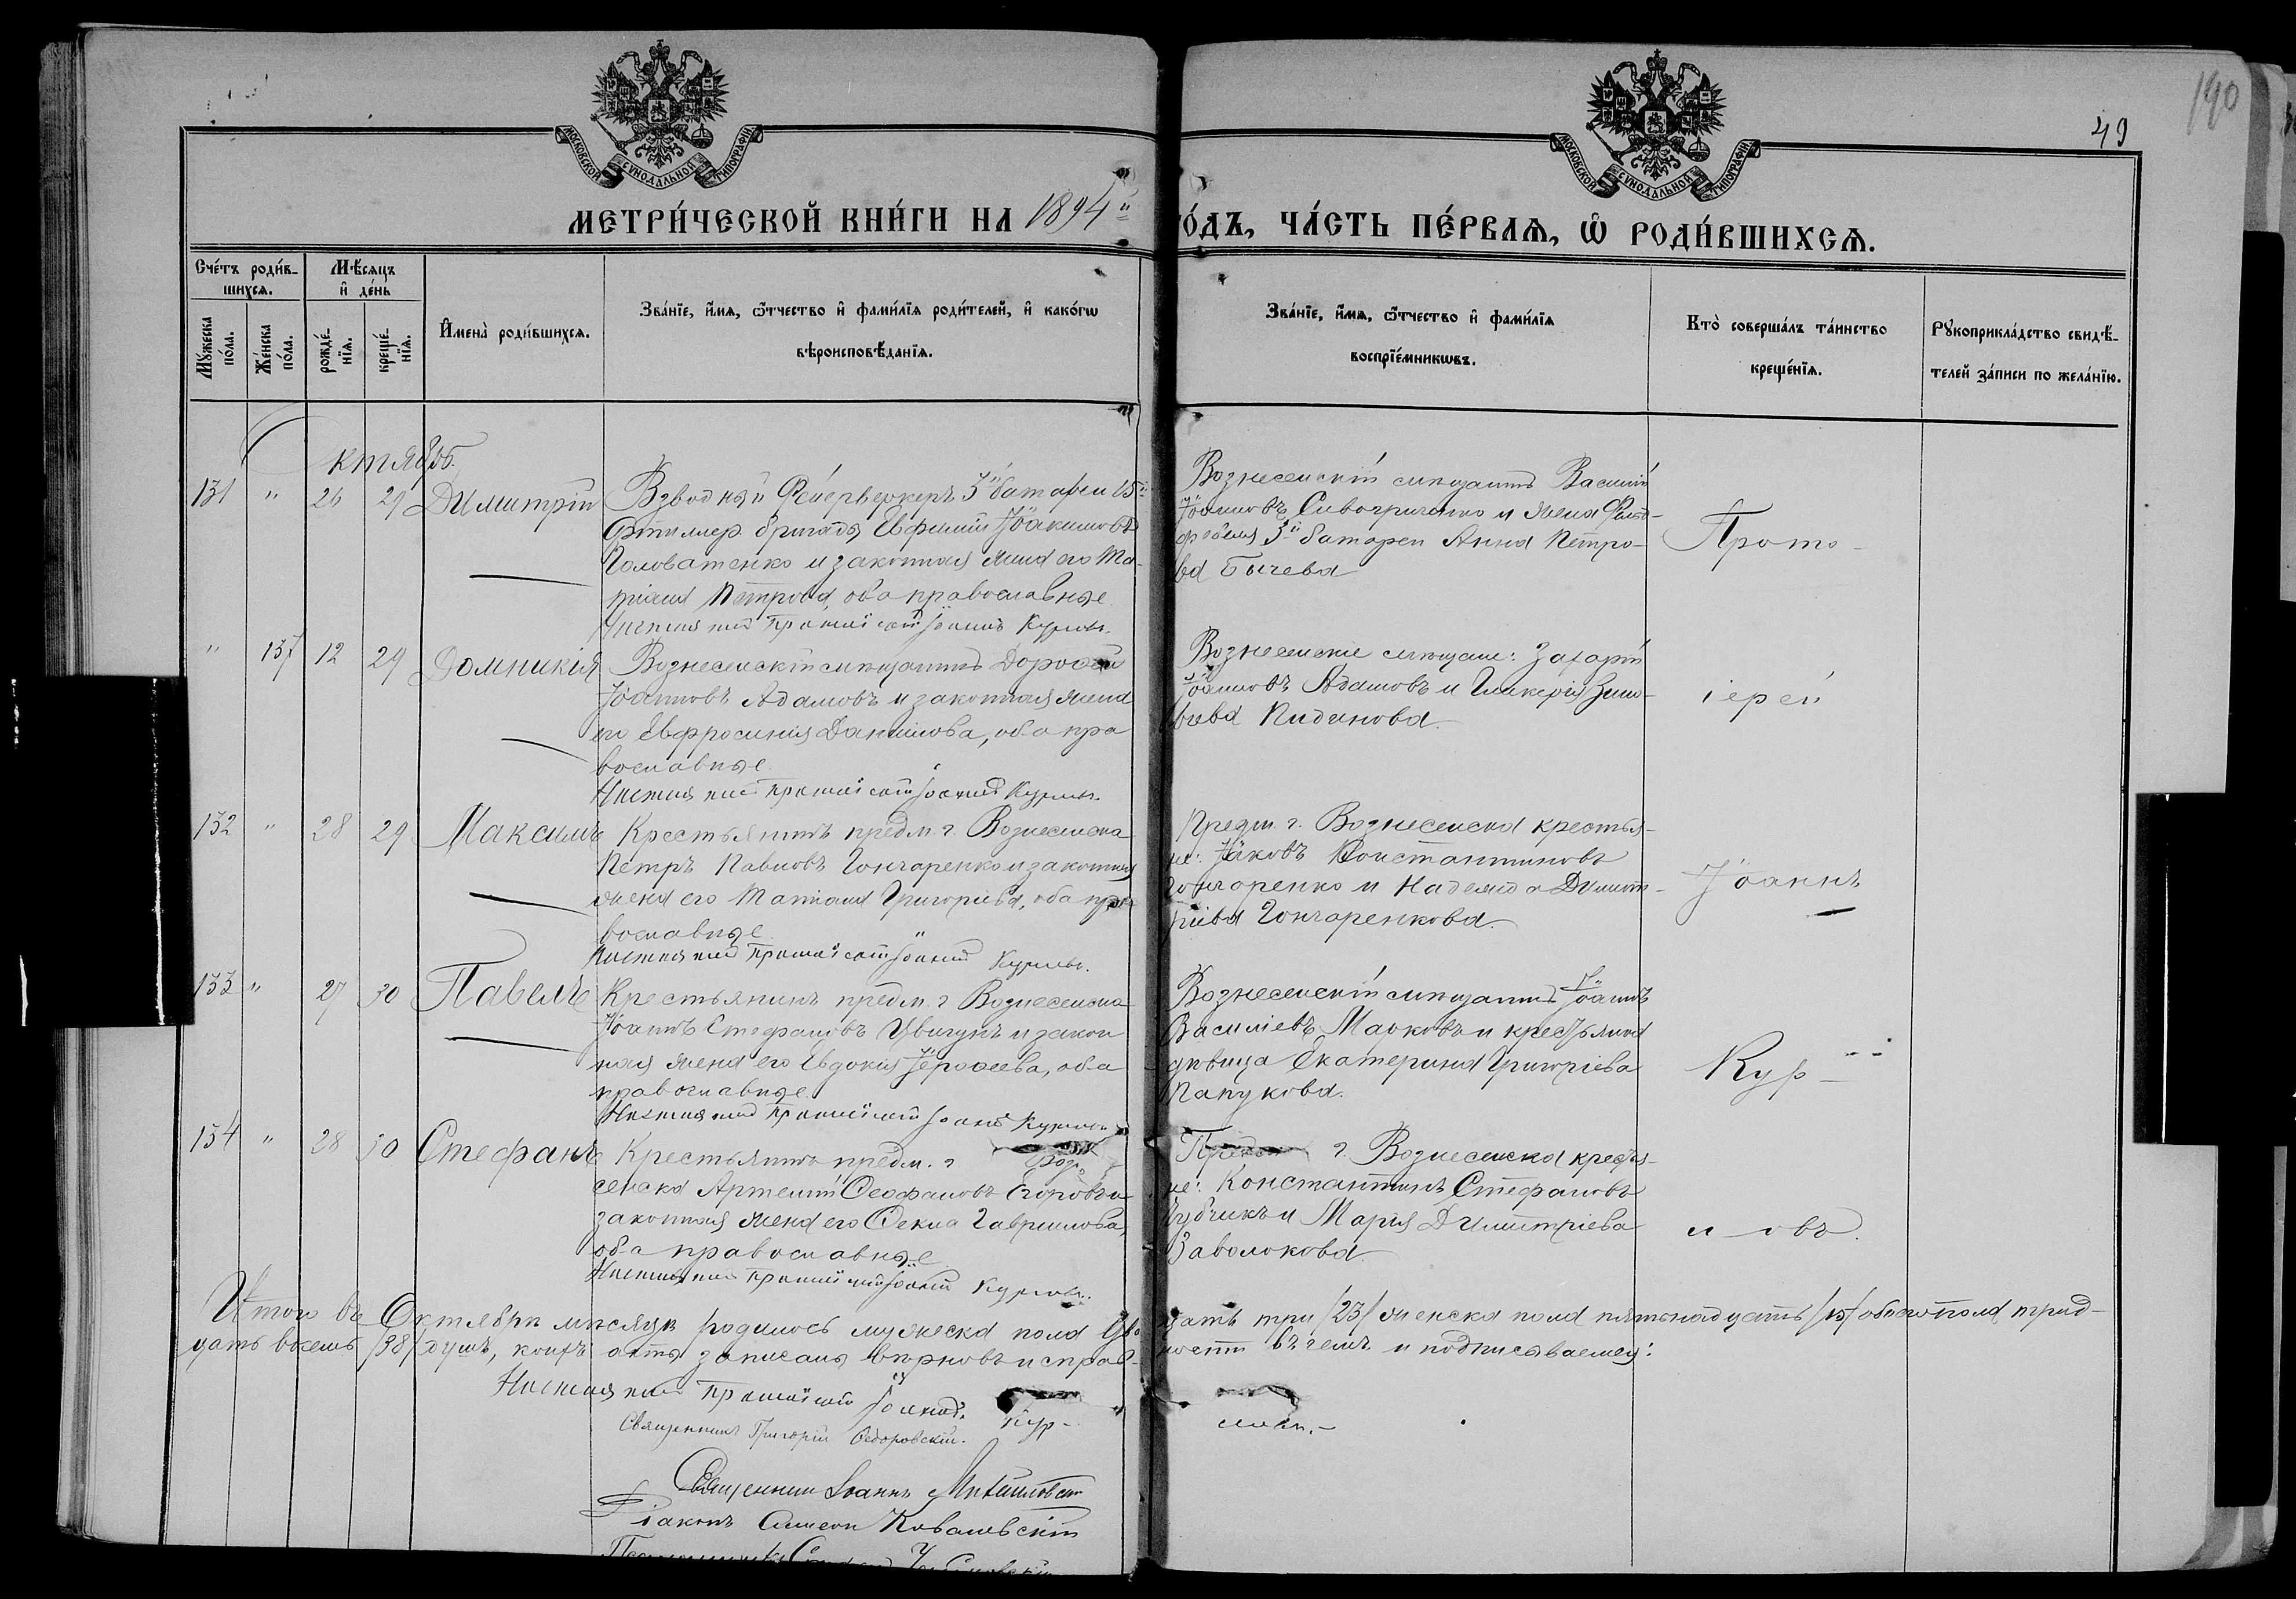 190
49
МОСКОВСКОЙ СѴНОДАЛЬНОЙ ТИПОГРАФІИ
МОСКОВСКОЙ СѴНОДАЛЬНОЙ ТИПОГРАФІИ
МЕТРИ́ЧЕСКОЙ КНИ́ГИ НА 1894 й
го́дъ, ЧА́СТЬ ПЕ́РВАѦ, Ѿ РОДИ́ВШИХСѦ.
Сче́тъ роди́в-
шихсѧ.
Мꙋ́жеска
по́ла.
Же́нска
по́ла.
Мѣ́сѧцъ
и҆ де́нь
рожде́-
нїѧ.
креще́-
нїѧ.
И҆мена̀ роди́вшихсѧ.
Зва́нїе, и҆́мѧ, ѻ҆́тчество и҆ фами́лїѧ роди́телей, и҆ како́гѡ
вѣроисповѣ́данїѧ.
Зва́нїе, и҆́мѧ, ѻ҆́тчество и҆ фами́лїѧ
воспрїе́мникѡвъ.
Кто̀ соверша́лъ та́инство
креще́нїѧ.
Рꙋкоприкла́дство свидѣ́-
телей за́писи по жела́нїю.
Октябрь.
131 " 26 29 Димитрій
Взводный Фейерверкеръ 3й батареи 15й
Артиллер. бригады Евфимій Іоакимовъ
Головатенко и законная жена его Ма-
Петрова, оба православные
Настоятель Протоіерей Іоаннъ Курловъ.
Вознесенскій мѣщанинъ Василій
Іоанновъ Сивогриченко и жена Фельд-
фебеля 3й батареи Анна Петро-
ва Бычева
Прото-
" 137 12 29 Домникія
Вознесенскій мѣщанинъ Дороѳей
Іоанновъ Адамовъ и законная жена
его Евфросинія Даніилова, оба пра
вославные.
Настоятель Протоіерей Іоаннъ Курловъ.
Вознесенскіе мѣщане: Захарій
Іоанновъ Адамовъ и Гликерія Зино-
вьева Пидинова.
іерей
132 " 28 29 Максимъ
Крестьянинъ предм. г. Вознесенска
Петръ Павловъ Гончаренко и законная
жена его Татіана Григоріева, оба пра-
вославные.
Настоятель Протоіерей Іоаннъ Курловъ.
Предм. г. Вознесенска крестья-
не: Іаковъ Константиновъ
Гончаренко и Надежда Димит-
ріева Гончаренкова.
Іоаннъ
133 " 27 30 Павелъ
Крестьянинъ предм. г Вознесенска
Іоаннъ Стефановъ Цвигунъ и закон
ная жена его Евдокія Іероѳеева, оба
православные.
Настоятель Протоіерей Іоаннъ Курловъ
Вознесенскій мѣщанинъ Іоаннъ
Василіевъ Марковъ и крестьянка
дѣвица Екатерина Григоріева
Папукова.
Кур-
134 " 28 30 Стефанъ
Крестьянинъ предм. г Возне
сенска Артемій Ѳеофановъ Егоровъ и
законная жена его Ѳекла Гавриилова,
оба православные
Настоятель Протоіерей Іоаннъ Курловъ.
Предм. г. Вознесенска крестья-
не: Константинъ Стефановъ
Чубчикъ и Марія Димитріева
Заволокова
л-овъ.
Итого въ Октябрѣ мѣсяцѣ родилось мужеска пола два
дцать три /23/ женска пола пятьнадцать /15/ обоего пола трид-
цать восемь /38/ душъ, коихъ акты записаны вѣрно въ исправ-
ности въ чемъ и подписываемся:
Настоятель Протоіерей Іоаннъ Кур-
ловъ.-
Священникъ Григорій Ѳедоровскій.
Священникъ Іоаннъ Михайловскій
Діаконъ Симеонъ Ковалевскій